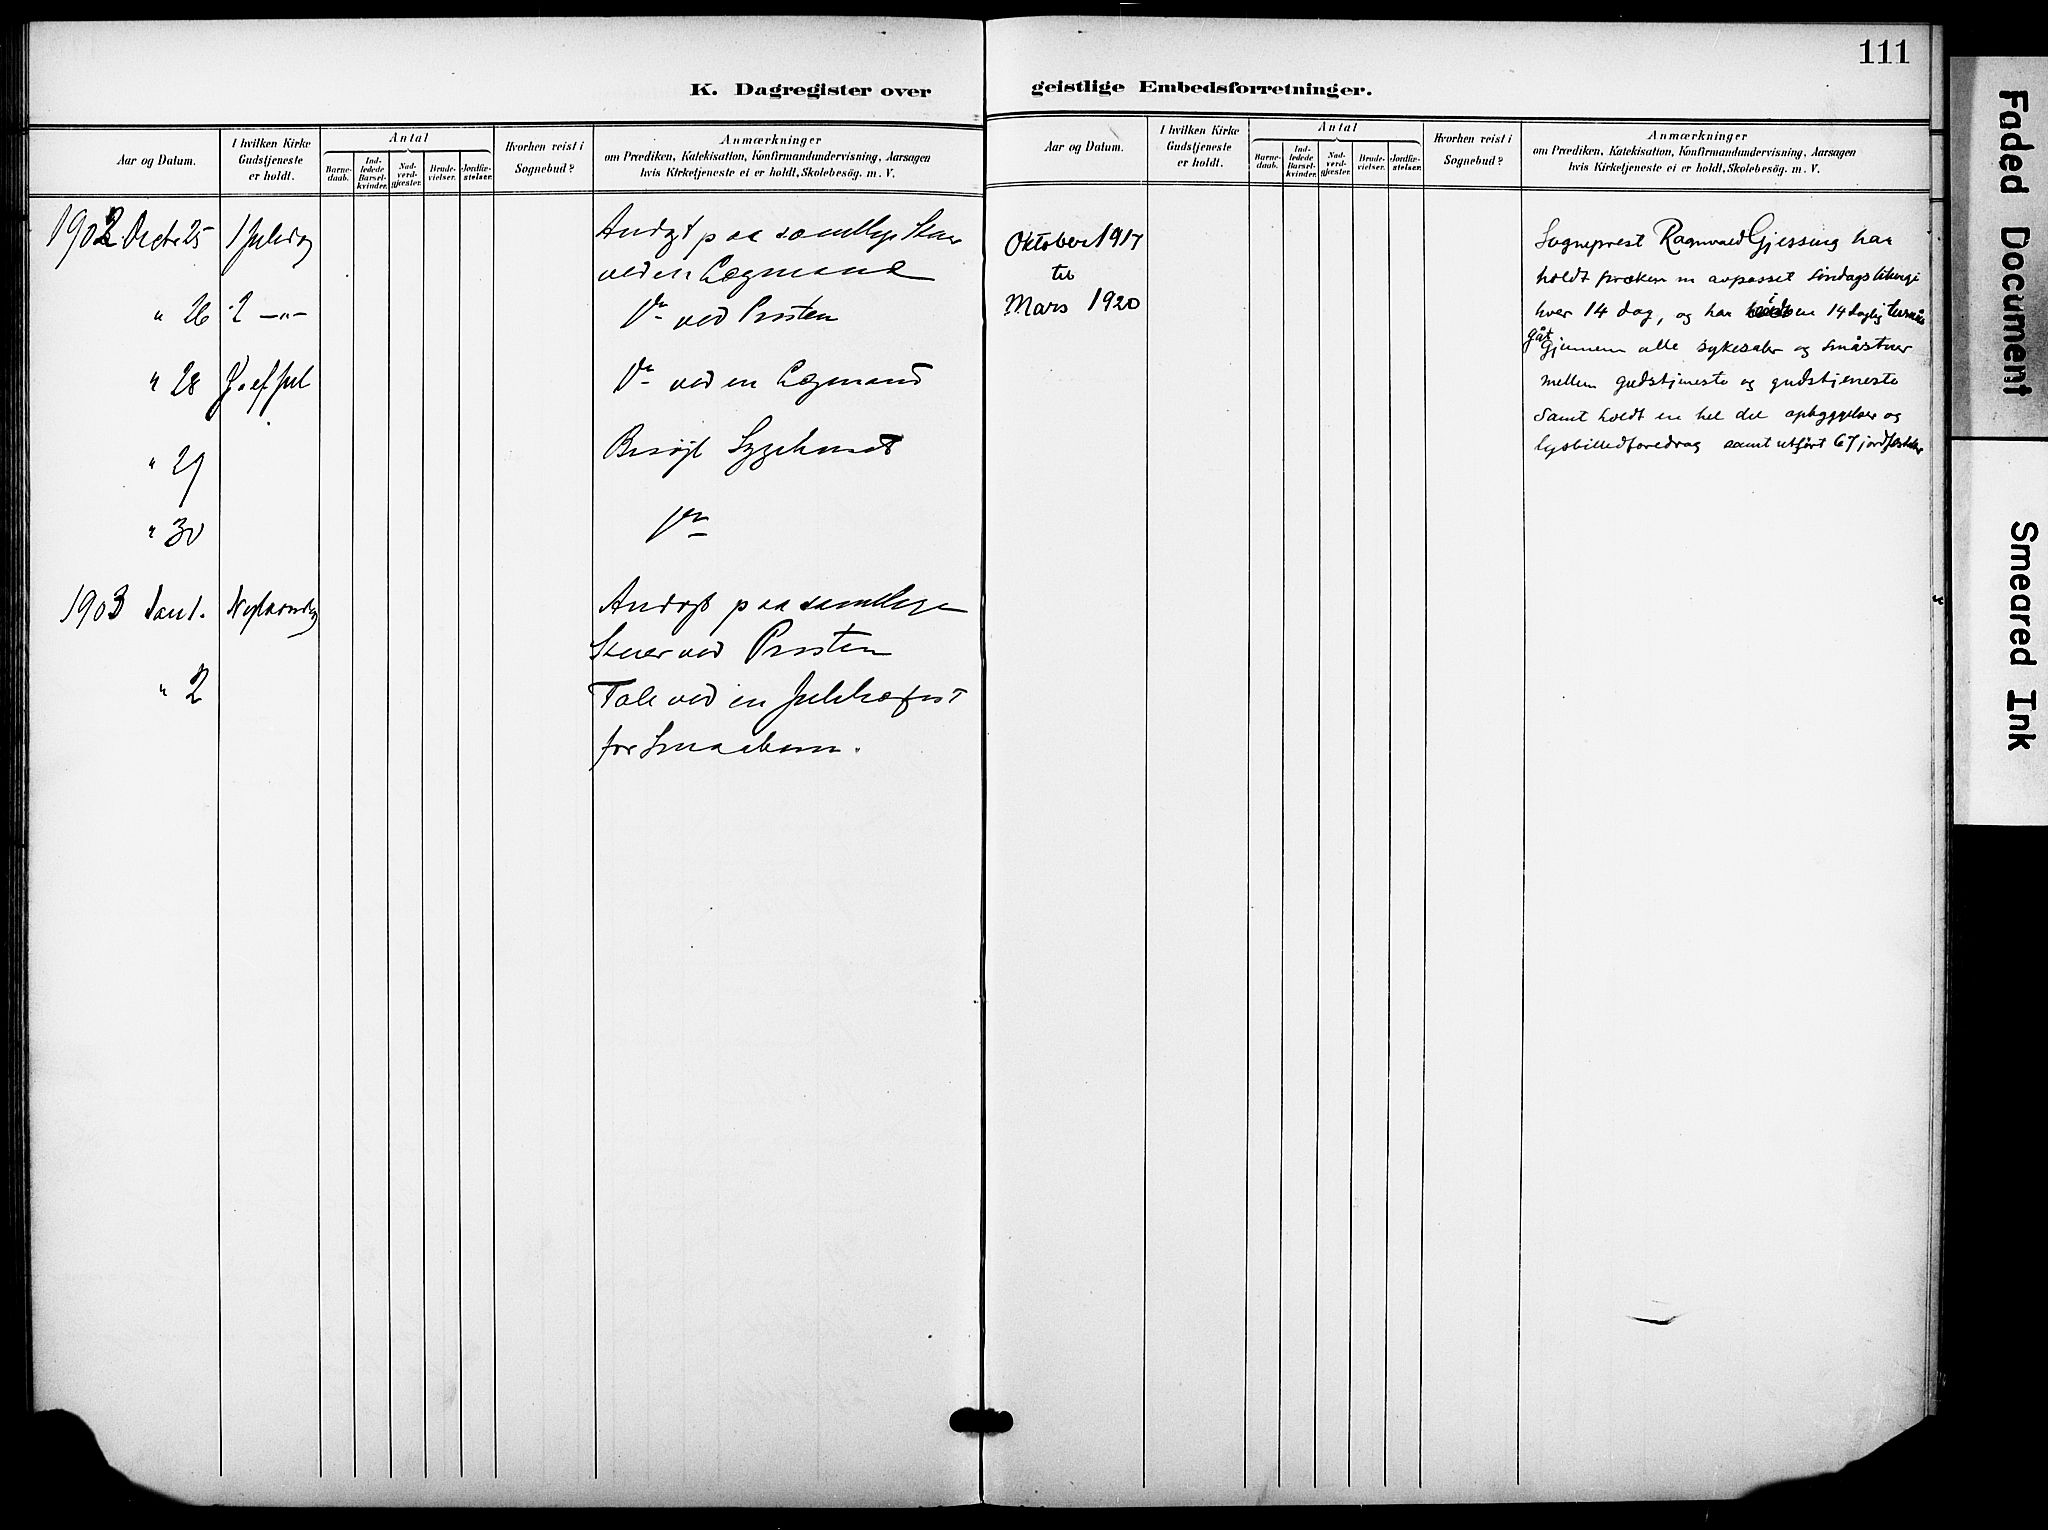 111
K. Dagregister over geistlige Embedsforretninger.
Aar og Datum.
I hvilken Kirke
Gudstjeneste
er holdt.
Antal
Barne-
daab.
Ind-
ledede
Barsel-
kvinder.
Nad-
verd-
gjæster.
Brude-
vielser.
Jordfæ-
stelser.
Hvorhen reist i
Sognebud?
Anmærkninger
om Prædiken, Katekisation, Konfirmandundervisning, Aarsagen
hvis Kirketjeneste ei er holdt, Skolebesög. m. V.
1902 Decbr 25 1 Juledag Andagt paa samtlige Stuer
ved en Lægmand
" 26 2 -"- Do ved Presten
" 28 S. ef Jul Do ved en Lægmand
" 29 Besøgt Sygehuset
" 30 Do
1903 Jan 1. Nytaarsdag Andagt paa samtlige
Stuer ved Presten
" 2 Tale ved en Juletræfest
for Smaabørn.
Aar og Datum.
I hvilken Kirke
Gudstjeneste
er holdt.
Antal
Barne-
daab.
Ind-
ledede
Barsel-
kvinder.
Nad-
verd-
gjæster.
Brude-
vielser.
Jordfæ-
stelser.
Hvorhen reist i
Sognebud?
Anmærkninger
om Prædiken, Katekisation, Konfirmandundervisning, Aarsagen
hvis Kirketjeneste ei er holdt, Skolebesög. m. V.
Oktober 1917
til
Mars 1920
Sogneprest Ragnvald Gjessing har
holdt præken m avpasset søndagsliturgi
hver 14 dag, og har i en 14 daglig
gåt gjennem alle sykesaler og småstuer
mellem gudstjeneste og gudstjeneste
samt holdt en hel del opbyggelser og
lysbilledforedrag samt utført 67 jordfæstelser
Faded Document
Smeared Ink